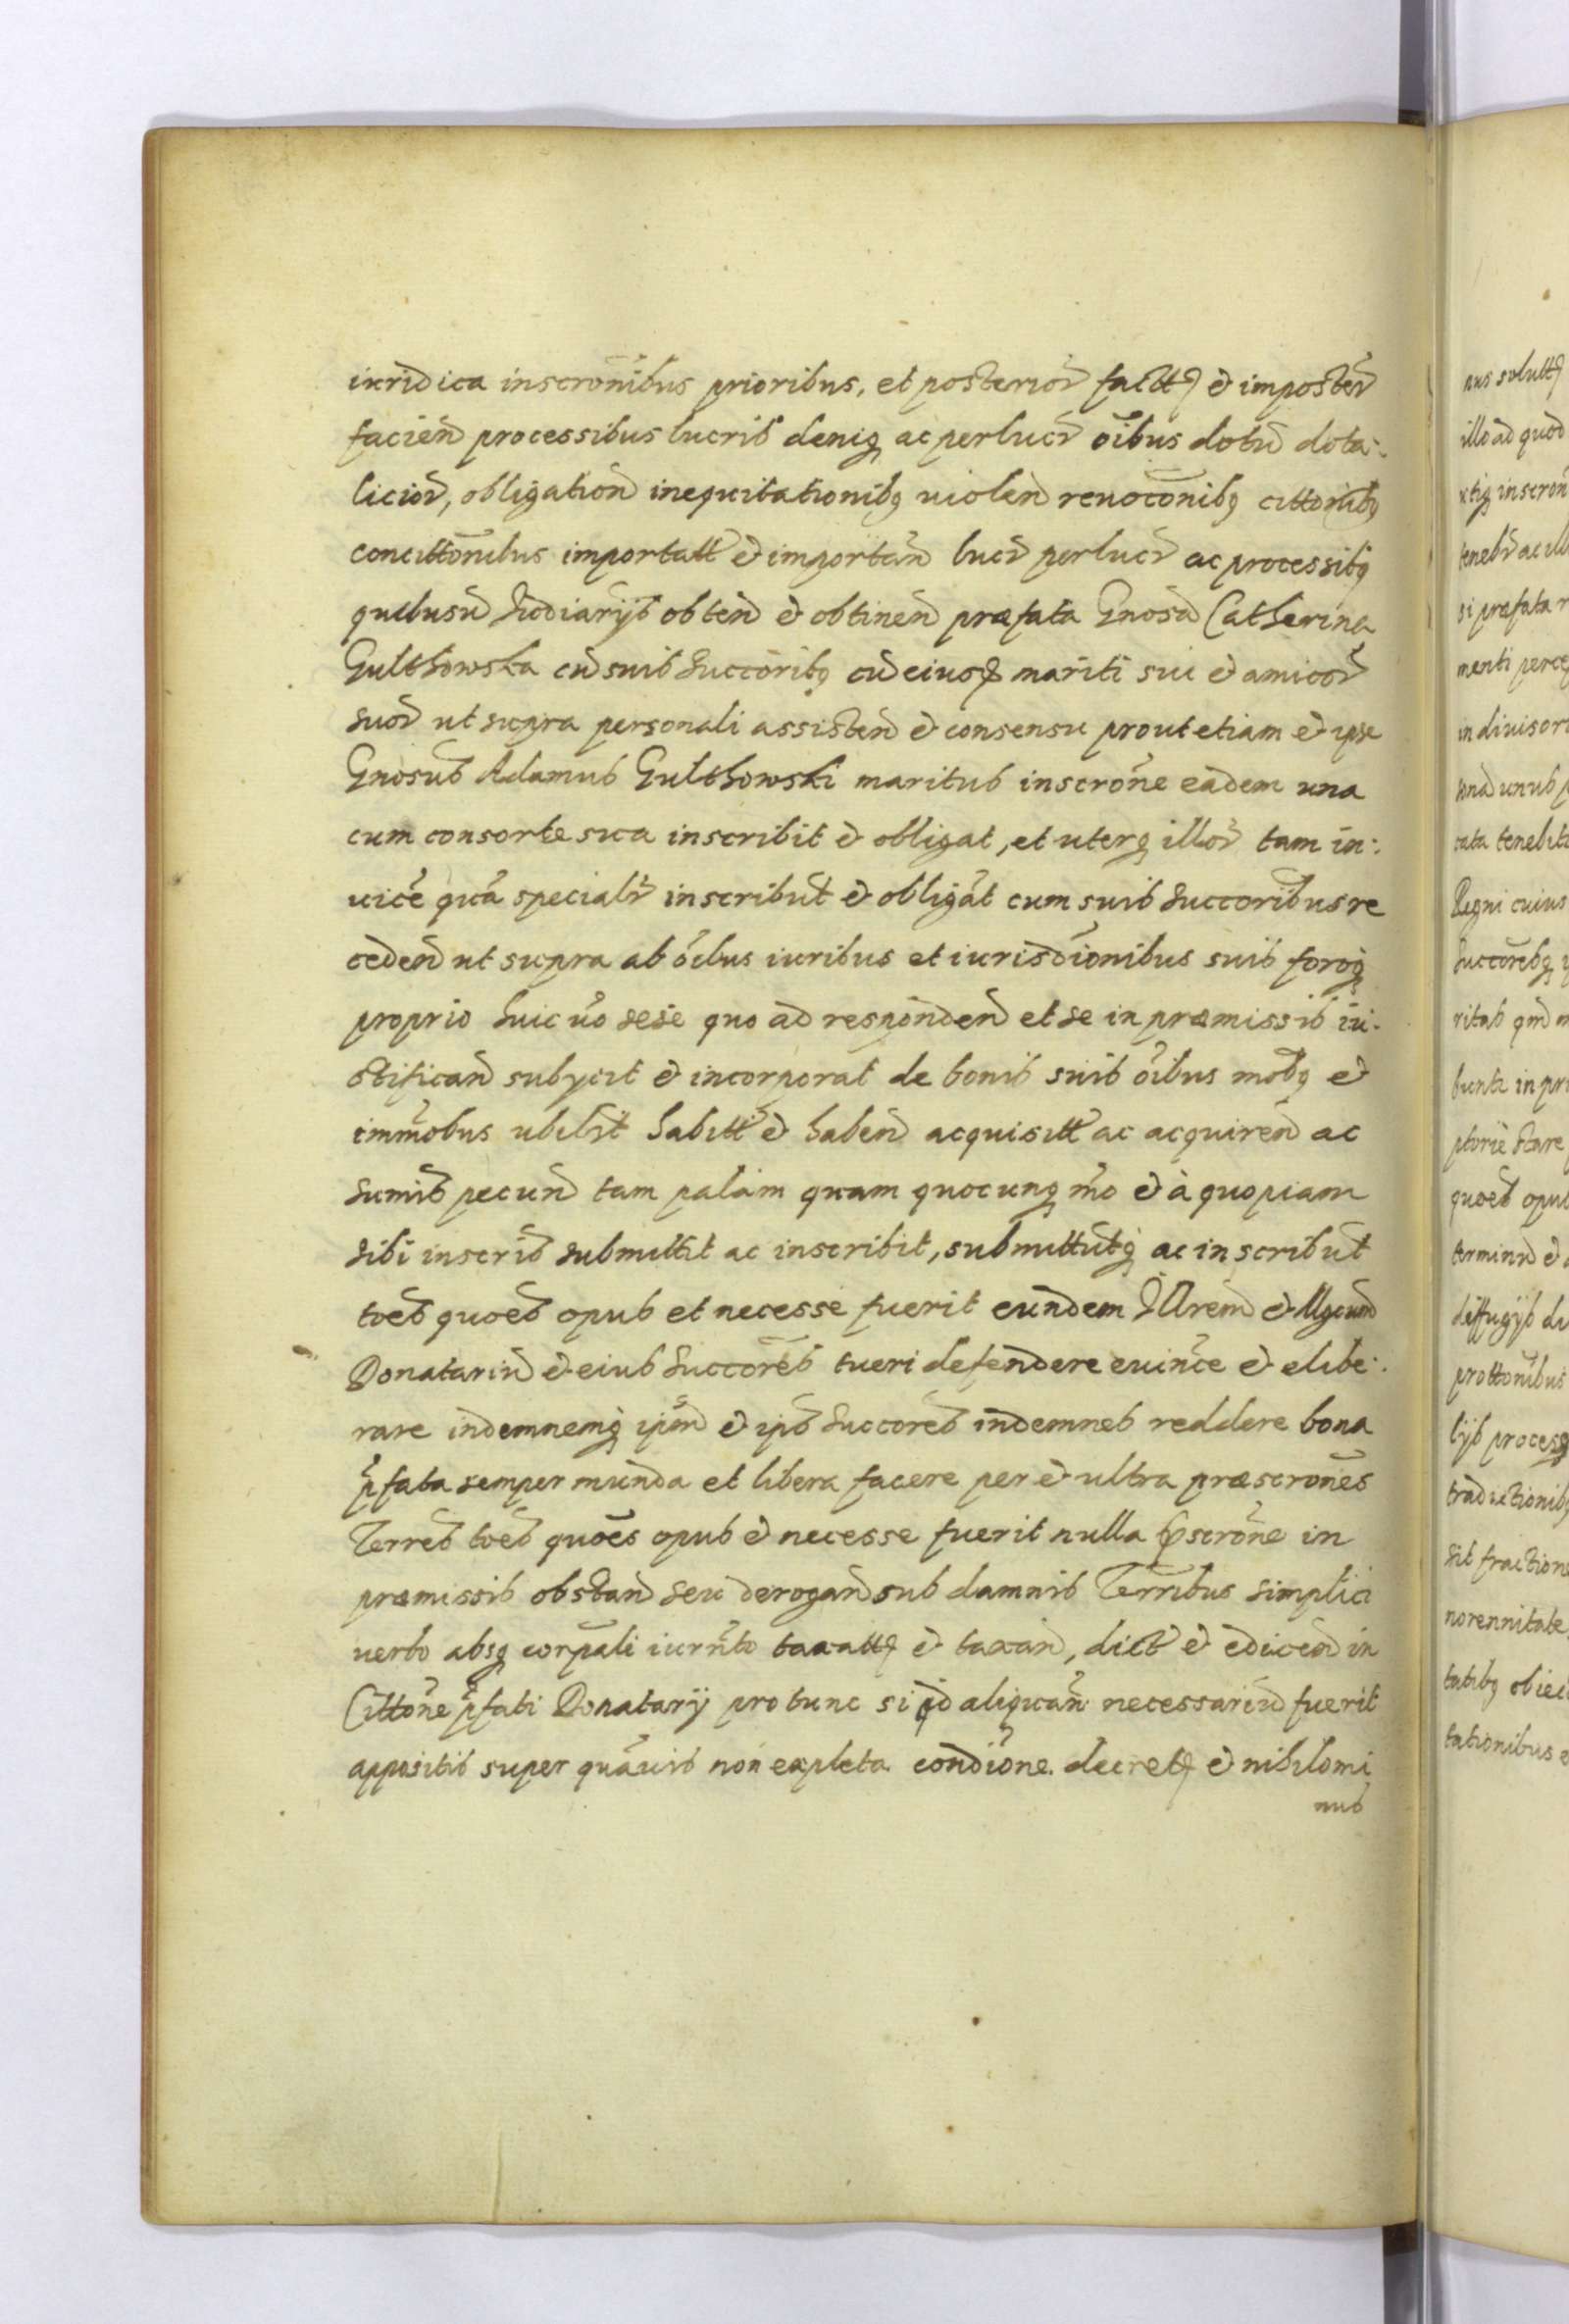 iuridica inscronibus prioribus, et posterior factt et imposter
facien processibus lucris deniq ac perlucr oibus dotu dota:
licior, obligation inequitationibq violen revoconibq cittonibq
concittonibus importatt et importan lucr perlucr ac processibq
quibusu hodiarijs obten et obtinen præfata Gnosa Catherina
Gulthowska cu suis Succoribq cu eiusd mariti sui et amicor
suor ut supra personali assisten et consensu prout etiam et ipse
Gnosus Adamus Gulthowski maritus inscrone eadem una
cum consorte sua inscribit et obligat, et uterq illor tam in:
uice qua specialr inscribut et obligat cum suis Succoribus re
ceden ut supra ab oibus iuribus et iurisdionibus suis foroq
proprio huic uo sese quo ad responden et se in præmissis iu:
stifican subycit et incorporat de bonis suis oibus mobq et
immobus ubilit habitt et haben acquisitt ac acquiren ac
Sumis pecun tam palam quam quocunq mo et à quopiam
sibi inscris submittit ac inscribit, submittutq ac inscribut
toes quoes opus et necesse fuerit eundem Illrem et Mgcum
Donatariu et eius Succores tueri defendere euince et elibe:
rare indemnemq ipm et ips Succores indemnes reddere bona
pfata semper munda et libera facere per et ultra præscrones
Terres toes quoes opus et necesse fuerit nulla pscrone in
præmissis obstan seu derogan sub damnis Terribus simplici
uerbo absq corpali iurnto taxatt et taxan, dict et edicen in
Cittone pfati Donatarij pro tunc si id aliquan necessariu fuerit
appositis super quauis non expleta condione decret et nihilomi
nus